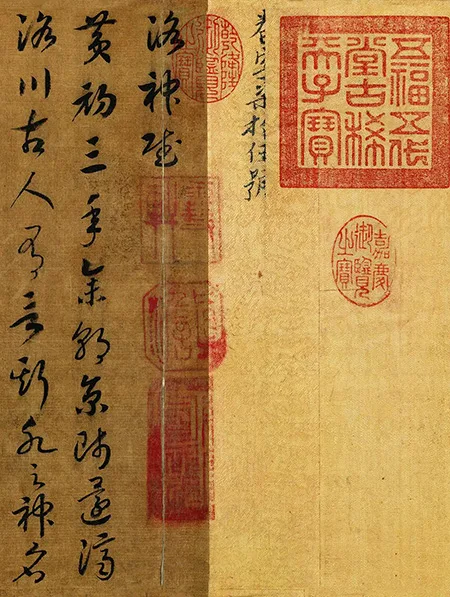 五福五代
堂古稀
天子寶
嘉慶
御覽
之寶
乾隆
御覽
之寶
洛神賦
黃初三年余朝京師還濟
洛川古人有言斯水之神名